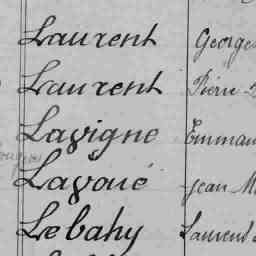 Laurent Georges
Laurent Pierre
Lavigne Emman
Lavoué Jean M
Lebahy Laurent